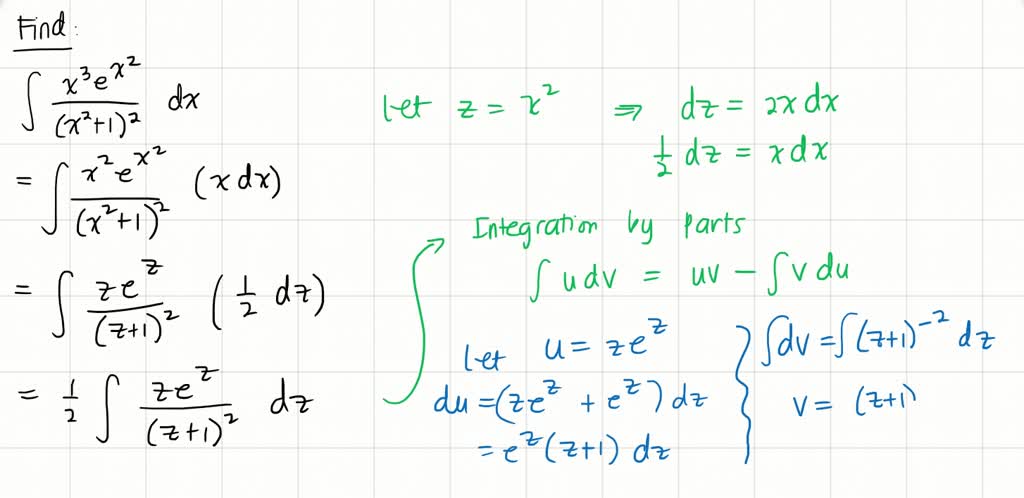 Find:
∫ x³e^(x²) / (x²+1)² dx
= ∫ x²e^(x²) / (x²+1)² (x dx)
= ∫ ze^z / (z+1)² (1/2 dz)
= 1/2 ∫ ze^z / (z+1)² dz
let z = x² ⇒ dz = 2x dx
1/2 dz = x dx
Integration by parts
∫ u dv = uv − ∫ v du
let u = ze^z
du = (ze^z + e^z) dz
= e^z (z+1) dz
∫ dv = ∫ (z+1)^(−2) dz
v = (z+1)